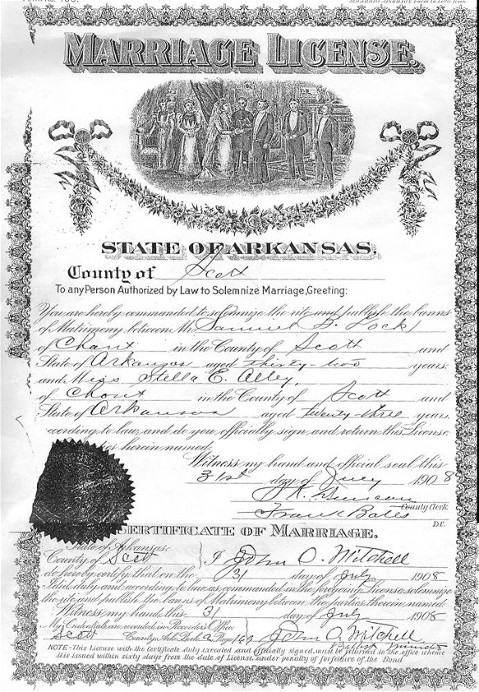 MARRIAGE LICENSE.
STATE OF ARKANSAS.
County of Scott
To any Person Authorized by Law to Solemnize Marriage, Greeting:
You are hereby commanded to solemnize the rite and publish the banns
of Matrimony between Mr. Samuel
of Chant in the County of Scott and
State of Arkansas aged Thirty-two years
and Miss Stella E. Alley,
of Chant in the County of Scott and
State of Arkansas aged twenty-three years
according to law, and do you officially sign and return this License
herein named.
Witness my hand and official seal this
31st day of July 1908
County Clerk.
Frank Bates D.C.
CERTIFICATE OF MARRIAGE.
State of Arkansas,
County of Scott I John O. Mitchell
do hereby certify that on the 31 day of July 1908
I did duly and according to law as commanded in the foregoing License, solemnize
the rit and publish the Banns of Matrimony between the parties therein named.
Witness my hand this 31 day of July 1908
My Credentials are recorded in Recorder's Office
Scott County Ark. Book a Page 149 John O. Mitchell
Baptist Minister
NOTE - This License with the Certificate duly executed and officially signed must be returned to the office whence
it is issued within sixty days from the date of License under penalty of forfeiture of the Bond